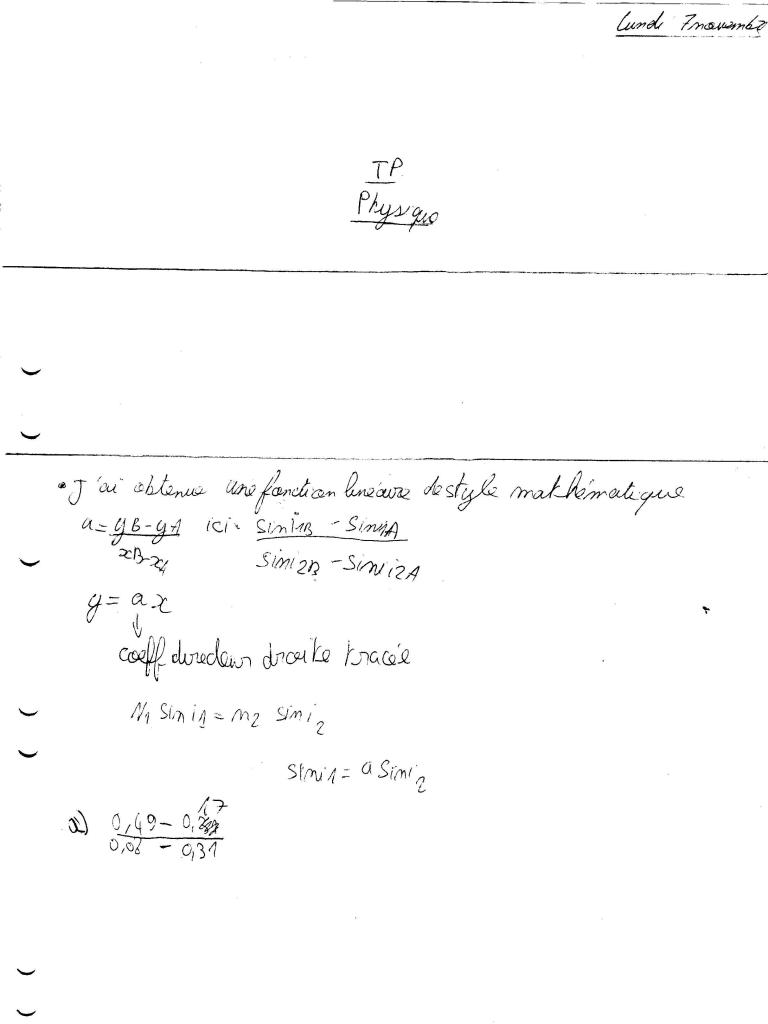 Lundi 7 novembre
TP
Physique
• J'ai obtenue une fonction linéaire de style mathématique
a = yB - yA ici: sin i1B - sin i1A
xB - xA sin i2B - sin i2A
y = a x
↓
coeff directeur droite tracée
N1 sin i1 = n2 sin i2
sin i1 = a sin i2
a) 0,49 - 0,17
0,06 - 0,31